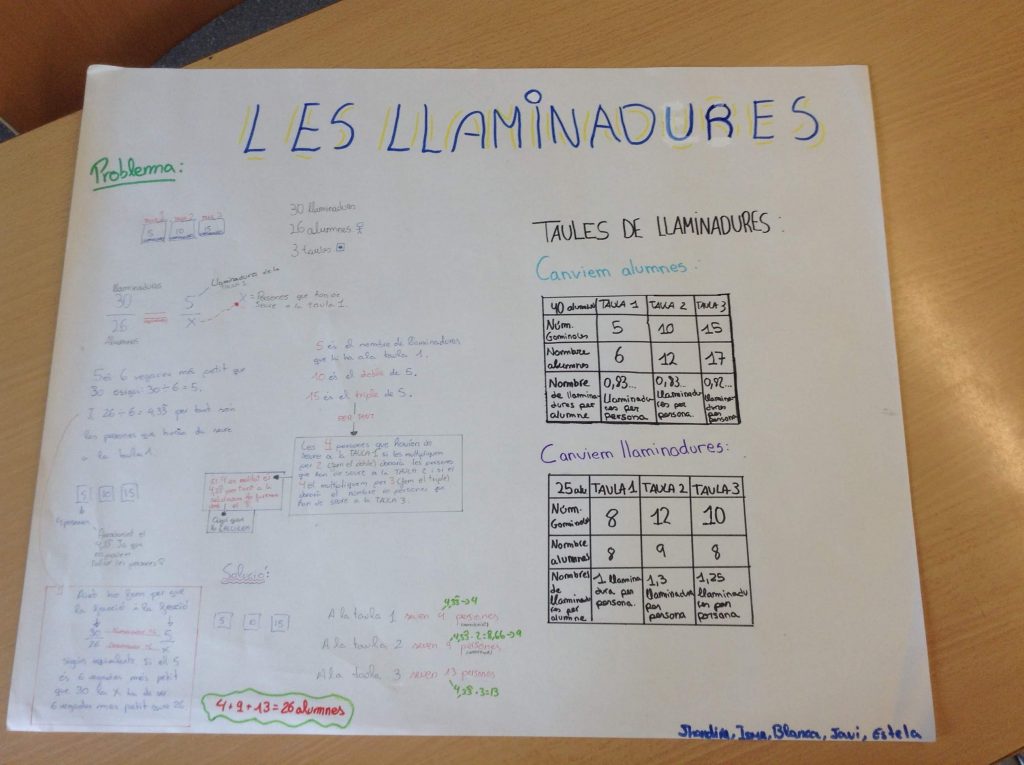 LES LLAMINADURES
Problema:
5 10 15
30 llaminadures
26 alumnes
3 taules
llaminadures
30
26
Alumnes
5
X
Llaminadura de la
TAULA 1
X = Persones que han de
seure a la taula 1.
5 és 6 vegades més petit que
30 osigui: 30÷6=5.
I 26÷6=4,33 per tant són
les persones que hauria de seure
a la taula 1.
5 és el nombre de llaminadures
que hi ha a la taula 1.
10 és el doble de 5.
15 és el triple de 5.
PER TANT
Les 4 persones que hauien de
seure a la TAULA 1 si les multipliquem
per 2 (fem el doble) donaria les persones
que han de seure a la TAULA 2 i si el
4 el multipliquem per 3 (fem el triple)
donaria el nombre de persones que
han de seure a la TAULA 3.
5 10 15
4 persones
Això ho fem per que
la fracció a la fracció
30
26
5
X
siguin equivalents, si el 5
és 6 vegades més petit
que 30 la X ha de ser
6 vegades més petit que 26
Solució:
5 10 15
4,33→4
A la taula 1 seuen 4 persones
4,33·2=8,66→9
A la taula 2 seuen 9 persones
A la taula 3 seuen 13 persones
4,33·3=13
4+9+13=26 alumnes
TAULES DE LLAMINADURES:
Canviem alumnes:
40 alumnes TAULA 1 TAULA 2 TAULA 3
Núm. Gominoles 5 10 15
Nombre alumnes 6 12 17
Nombre de llaminadures per alumne 0,83... llaminadures per persona. 0,83... llaminadures per persona. 0,82... llaminadures per persona.
Canviem llaminadures:
25 alu TAULA 1 TAULA 2 TAULA 3
Núm. Gominoles 8 12 10
Nombre alumnes 8 9 8
Nombres de llaminadures per alumne 1 llaminadura per persona. 1,3 llaminadura per persona 1,25 llaminadures per persona
Blanca, Javi, Estela